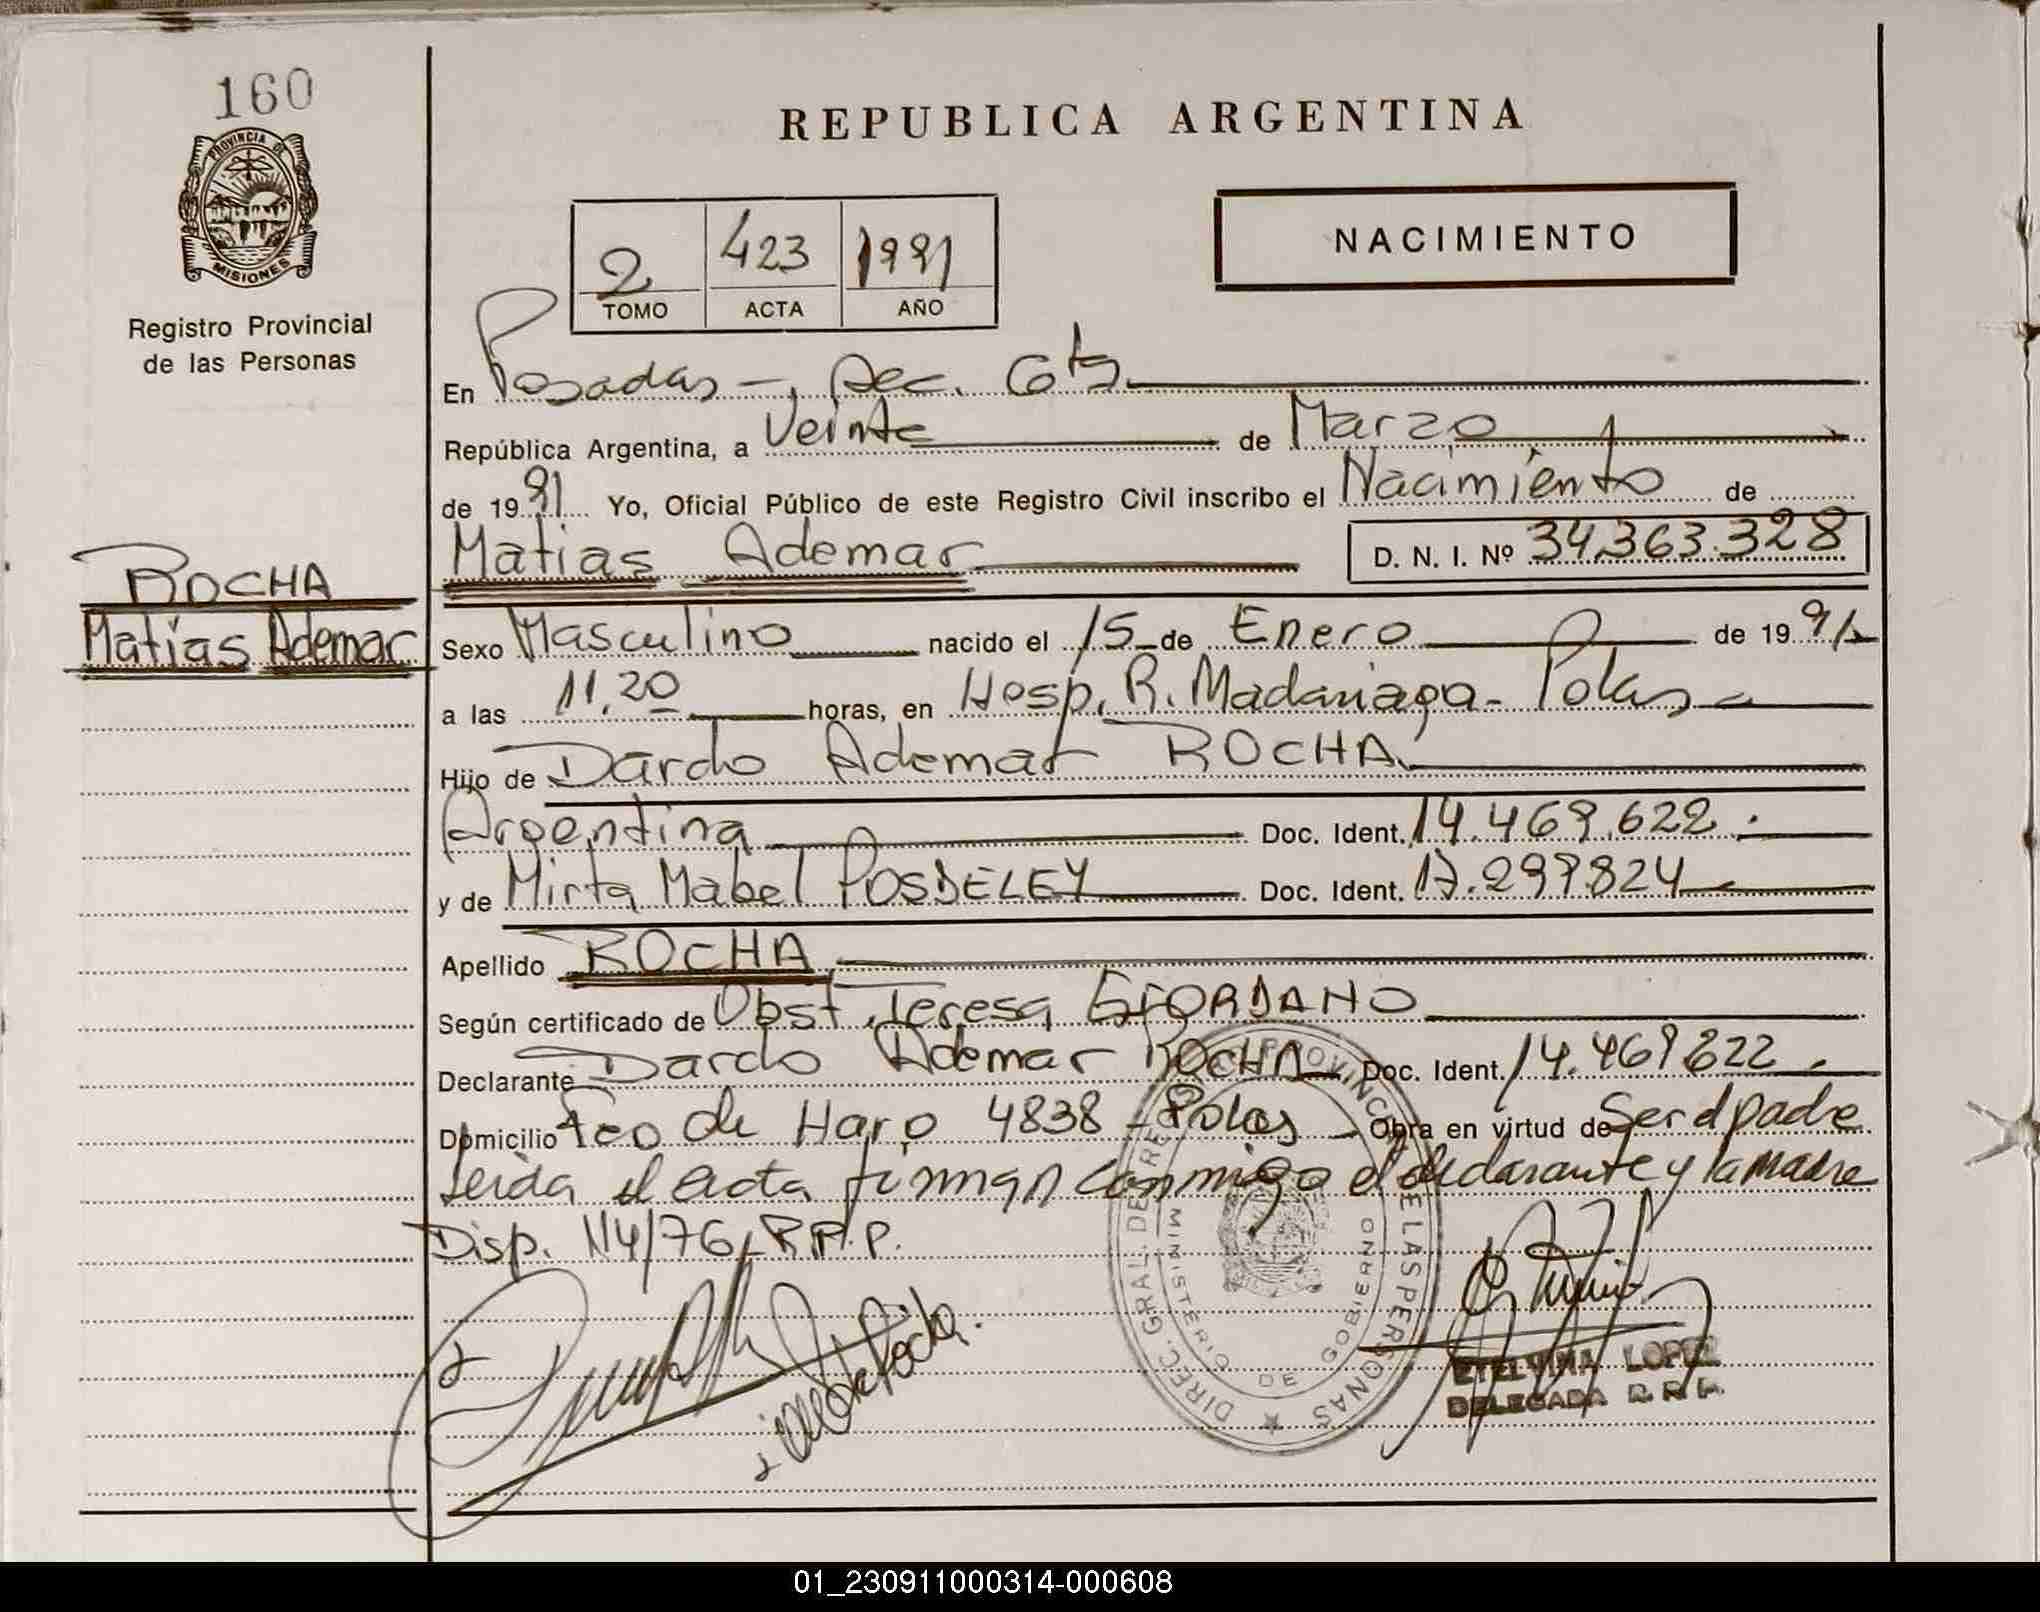 160
REPUBLICA ARGENTINA
PROVINCIA DE
MISIONES
Registro Provincial
de las Personas
NACIMIENTO
2 423 1991
TOMO ACTA AÑO
En Posadas - Sec. 6ta
República Argentina, a Veinte de Marzo
de 1991 Yo, Oficial Público de este Registro Civil inscribo el Nacimiento de
Matias Ademar D. N. I. Nº 34.363.328
ROCHA
Matías Ademar
Sexo Masculino nacido el 15 de Enero de 1991
a las 11,20 horas, en Hosp. R. Madariaga - Pdas
Hijo de Dardo Ademar ROCHA
Argentina Doc. Ident. 14.469.622
y de Mirta Mabel POSDELEY Doc. Ident. 17.299.824
Apellido ROCHA
Según certificado de Obst. Teresa GIORDANO
Declarante Dardo Ademar ROCHA Doc. Ident. 14.469.622
Domicilio Fco de Haro 4838 - Pdas Obra en virtud de Ser el padre
Leida el acta firman conmigo el declarante y la madre
Disp. 114/76 R.P.P.
DIREC. GRAL. DE REG. PROVINC. DE LAS PERSONAS
MINISTERIO DE GOBIERNO
ETELVINA LOPEZ
DELEGADA R. P. P.
01_230911000314-000608